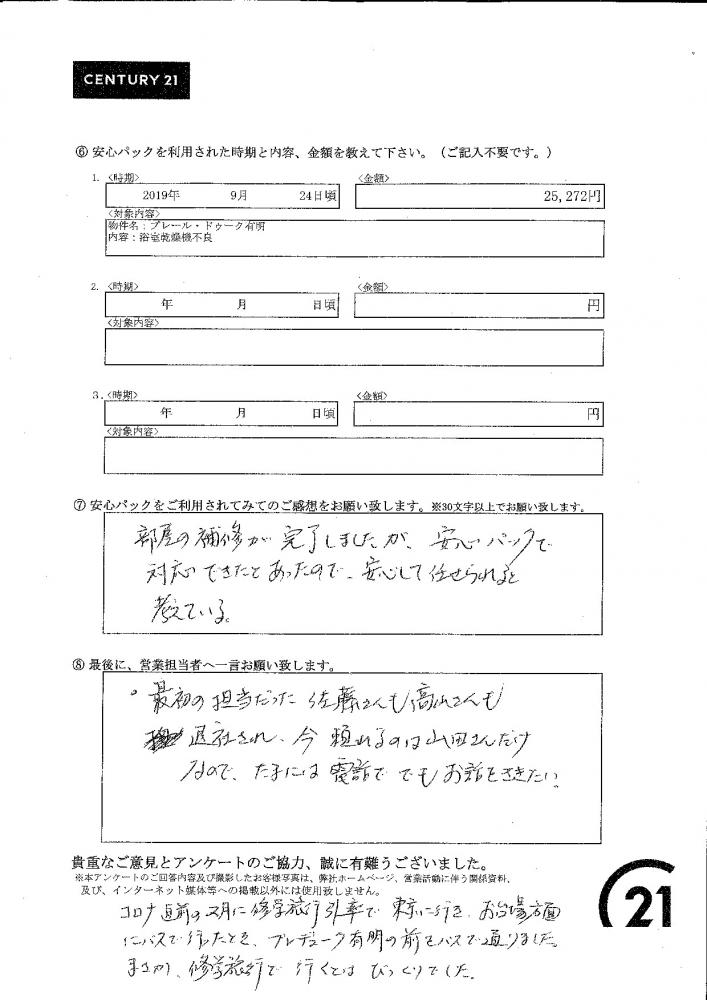 CENTURY 21
⑥ 安心パックを利用された時期と内容、金額を教えて下さい。（ご記入不要です。）
1. <時期> <金額>
2019年 9月 24日頃 25,272円
<対象内容>
物件名：ブレール・ドゥーク有明
内容：浴室乾燥機不良
2. <時期> <金額>
年 月 日頃 円
<対象内容>
3. <時期> <金額>
年 月 日頃 円
<対象内容>
⑦ 安心パックをご利用されてみてのご感想をお願い致します。※30文字以上でお願い致します。
部屋の補修が完了しましたが、安心パックで
対応できたとあったので、安心して任せられると
考えている。
⑧ 最後に、営業担当者へ一言お願い致します。
。最初の担当だった佐藤さんも高山さんも
退社され、今頼れるのは山田さんだけ
なので、たまには電話ででもお話をききたい。
貴重なご意見とアンケートのご協力、誠に有難うございました。
※本アンケートのご回答内容及び撮影したお客様写真は、弊社ホームページ、営業活動に伴う関係資料、
及び、インターネット媒体等への掲載以外には使用致しません。
21
コロナ直前の2月に修学旅行引率で東京に行き、お台場方面
にバスで行ったとき、ブレデューク有明の前をバスで通りました。
まさか、修学旅行で行くとはびっくりでした。